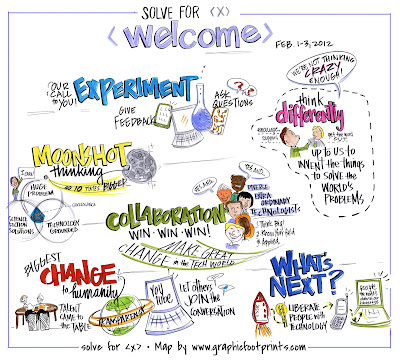 SOLVE FOR <X>
<welcome>
FEB. 1-3, 2012
OUR
CALL to
YOU!
EXPERIMENT
GIVE
FEEDBACK
ASK
QUESTIONS
WE'RE NOT THINKING
CRAZY
ENOUGH!
think
differently
UP to US to
INVENT the THINGS
to SOLVE the
WORLD'S
PROBLEMS
MOONSHOT
thinking
10 TIMES BIGGER
HUGE
PROBLEM
SCIENCE
FICTION
SOLUTIONS
TECHNOLOGY
GROUNDED
COLLABORATION!
WIN·WIN·WIN!
DIVERSE
EXTRA
ORDINARY
TECHNOLOGISTS
1 Think Big!
2 Know their field
3 Applied
MAKE GREAT
CHANGE in the TECH WORLD
BIGGEST
CHANGE
to humanity
TALENT
CAME to
the TABLE
TRANSPARENCY
YOU
TUBE
Let others
JOIN the
CONVERSATION
WHAT'S
NEXT?
LIBERATE
PEOPLE with
TECHNOLOGY
solve for <x> • Map by www.graphicfootprints.com